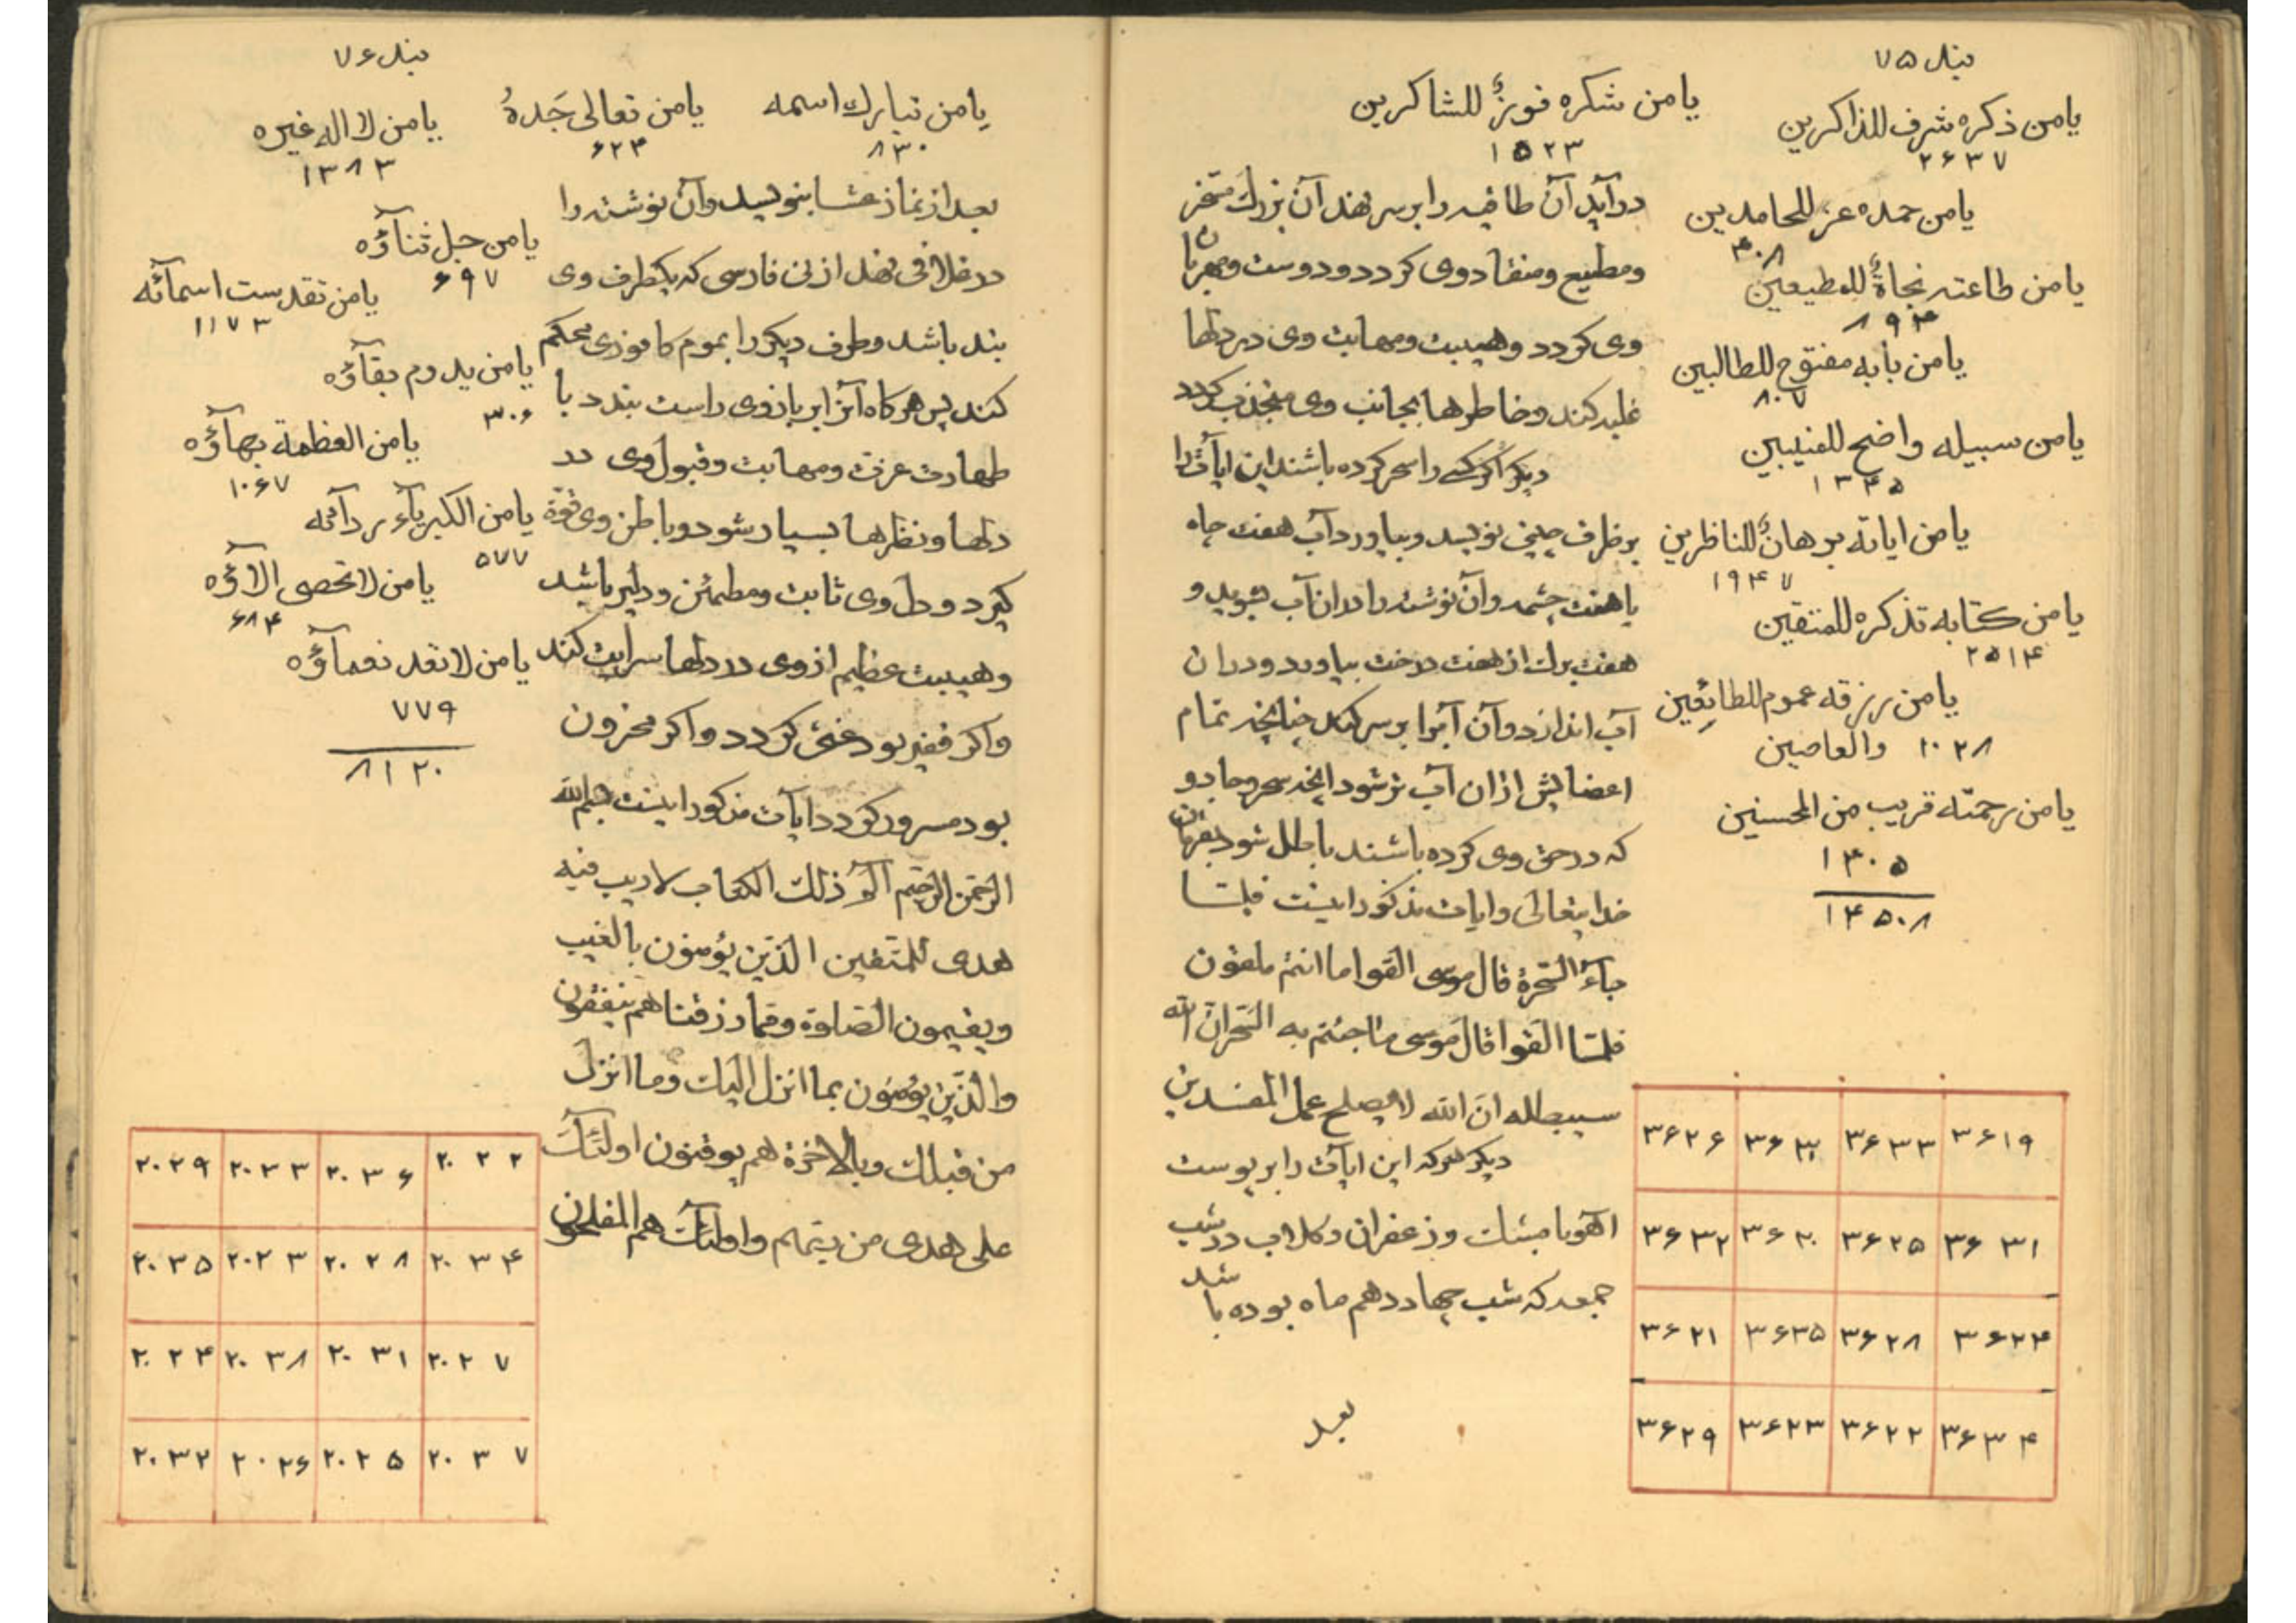 بند ۷۵
یا من ذکره شرف للذاکرین
۲۶۳۷
یا من شکره فوزٌ للشاکرین
۱۵۲۳
یا من حمده عز للحامدین
۳۰۸
یا من طاعته نجاةٌ للمطیعین
۸۹۴
یا من بابه مفتوح للطالبین
۸۰۷
یا من سبیله واضح للمنیبین
۱۳۴۵
یا من ایاته برهانٌ للناظرین
۱۹۴۷
یا من کتابه تذکره للمتقین
۲۵۱۴
یا من رزقه عموم للطائعین
والعاصین ۱۰۲۸
یا من رحمته قریب من المحسنین
۱۳۰۵
۱۴۵۰۸
درآید آن طاقیه را بر سر نهد آن بزرك مسخر
ومطیع ومنقاد وی کردد ودوست ومهربان
وی کردد وهیبت ومهابت وی در دلها
غلبه کند وخاطرها بجانب وی منجذب کردد
دیکر اکر کسی را سحر کرده باشند این ایآت را
بر ظرف چینی نویسد وبیاورد آب هفت چاه
یا هفت چشمه وآن نوشته را در ان آب بشوید و
هفت برك از هفت درخت بیاورد ودر ان
آب اندازد وآن آبرا بر سر کند چنانچه تمام
اعضایش از ان آب تر شود انچه سحر وجادو
که در حق وی کرده باشند باطل شود بفرمان
خدایتعالی وایات مذکور اینست فلمّا
جآءَ السّحرة قال موسی القوا ما انتم ملقون
فلمّا القوا قال موسی ما جئتم به السّحر انّ الله
سیبطله انّ الله لا یصلح عمل المفسدین
دیکر هرکه این ایآت را بر پوست
آهو با مشك وزعفران وکلاب در شب
جمعه که شب چهاردهم ماه بوده باشد
بعد
۳۶۲۶ ۳۶۳۰ ۳۶۳۳ ۳۶۱۹
۳۶۳۲ ۳۶۲۰ ۳۶۲۵ ۳۶۳۱
۳۶۲۱ ۳۶۳۵ ۳۶۲۸ ۳۶۲۴
۳۶۲۹ ۳۶۲۳ ۳۶۲۲ ۳۶۳۴
بند ۷۶
یا من تبارك اسمه
۸۳۰
یا من تعالی جَدهُ
۶۲۴
یا من لا اله غیره
۱۳۸۳
یا من جل ثنآؤه
۶۹۷
یا من تقدست اسمآئه
۱۱۷۳
یا من یدوم بقآؤه
۳۰۶
یا من العظمة بهآؤه
۱۰۶۷
یا من الکبریآء ردآئه
۵۷۷
یا من لا تحصی الاؤه
۶۸۴
یا من لا تعد نعمآؤه
۷۷۹
۸۱۲۰
بعد از نماز عشا بنویسد وآن نوشته را
در غلافی نهد از نی فارسی که یکطرف وی
بند باشد وطرف دیکر را بموم کافوری محکم
کند پس هرکاه آنرا بر بازوی راست بندد با
طهارت عزت ومهابت وقبول وی در
دلها ونظرها بسیار شود وباطن وی قوّة
کیرد ودل وی ثابت ومطمئن ودلیر باشد
وهیبت عظیم از وی در دلها سرایت کند
واکر فقیر بود غنی کردد واکر محزون
بود مسرور کردد ایآت مذکور اینست بسم الله
الرّحمن الرّحیم الم ذلك الکتاب لا ریب فیه
هدی للمتّقین الّذین یؤمنون بالغیب
ویقیمون الصّلوة وممّا رزقناهم ینفقون
والّذین یؤمنون بما انزل الیك وما انزل
من قبلك وبالاخرة هم یوقنون اولئك
علی هدی من ربّهم واولئك هم المفلحون
۲۰۲۹ ۲۰۳۳ ۲۰۳۶ ۲۰۲۲
۲۰۳۵ ۲۰۲۳ ۲۰۲۸ ۲۰۳۴
۲۰۲۴ ۲۰۳۸ ۲۰۳۱ ۲۰۲۷
۲۰۳۲ ۲۰۲۶ ۲۰۲۵ ۲۰۳۷